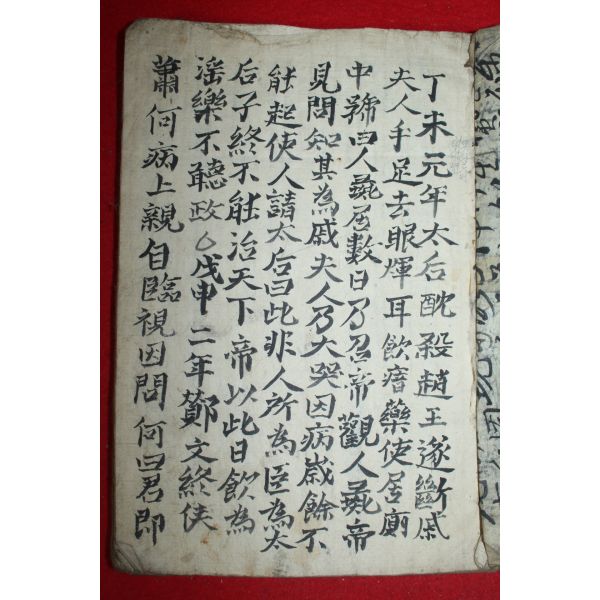 丁未元年太后酖殺趙王遂斷戚
夫人手足去眼煇耳飮瘖藥使居廁
中號曰人彘居數日乃召帝觀人彘帝
見問知其為戚夫人乃大哭因病歲餘不
能起使人請太后曰此非人所為臣為太
后子終不能治天下帝以此日飮為
滛樂不聽政○戊申二年酇文終侯
蕭何病上親自臨視因問何曰君即